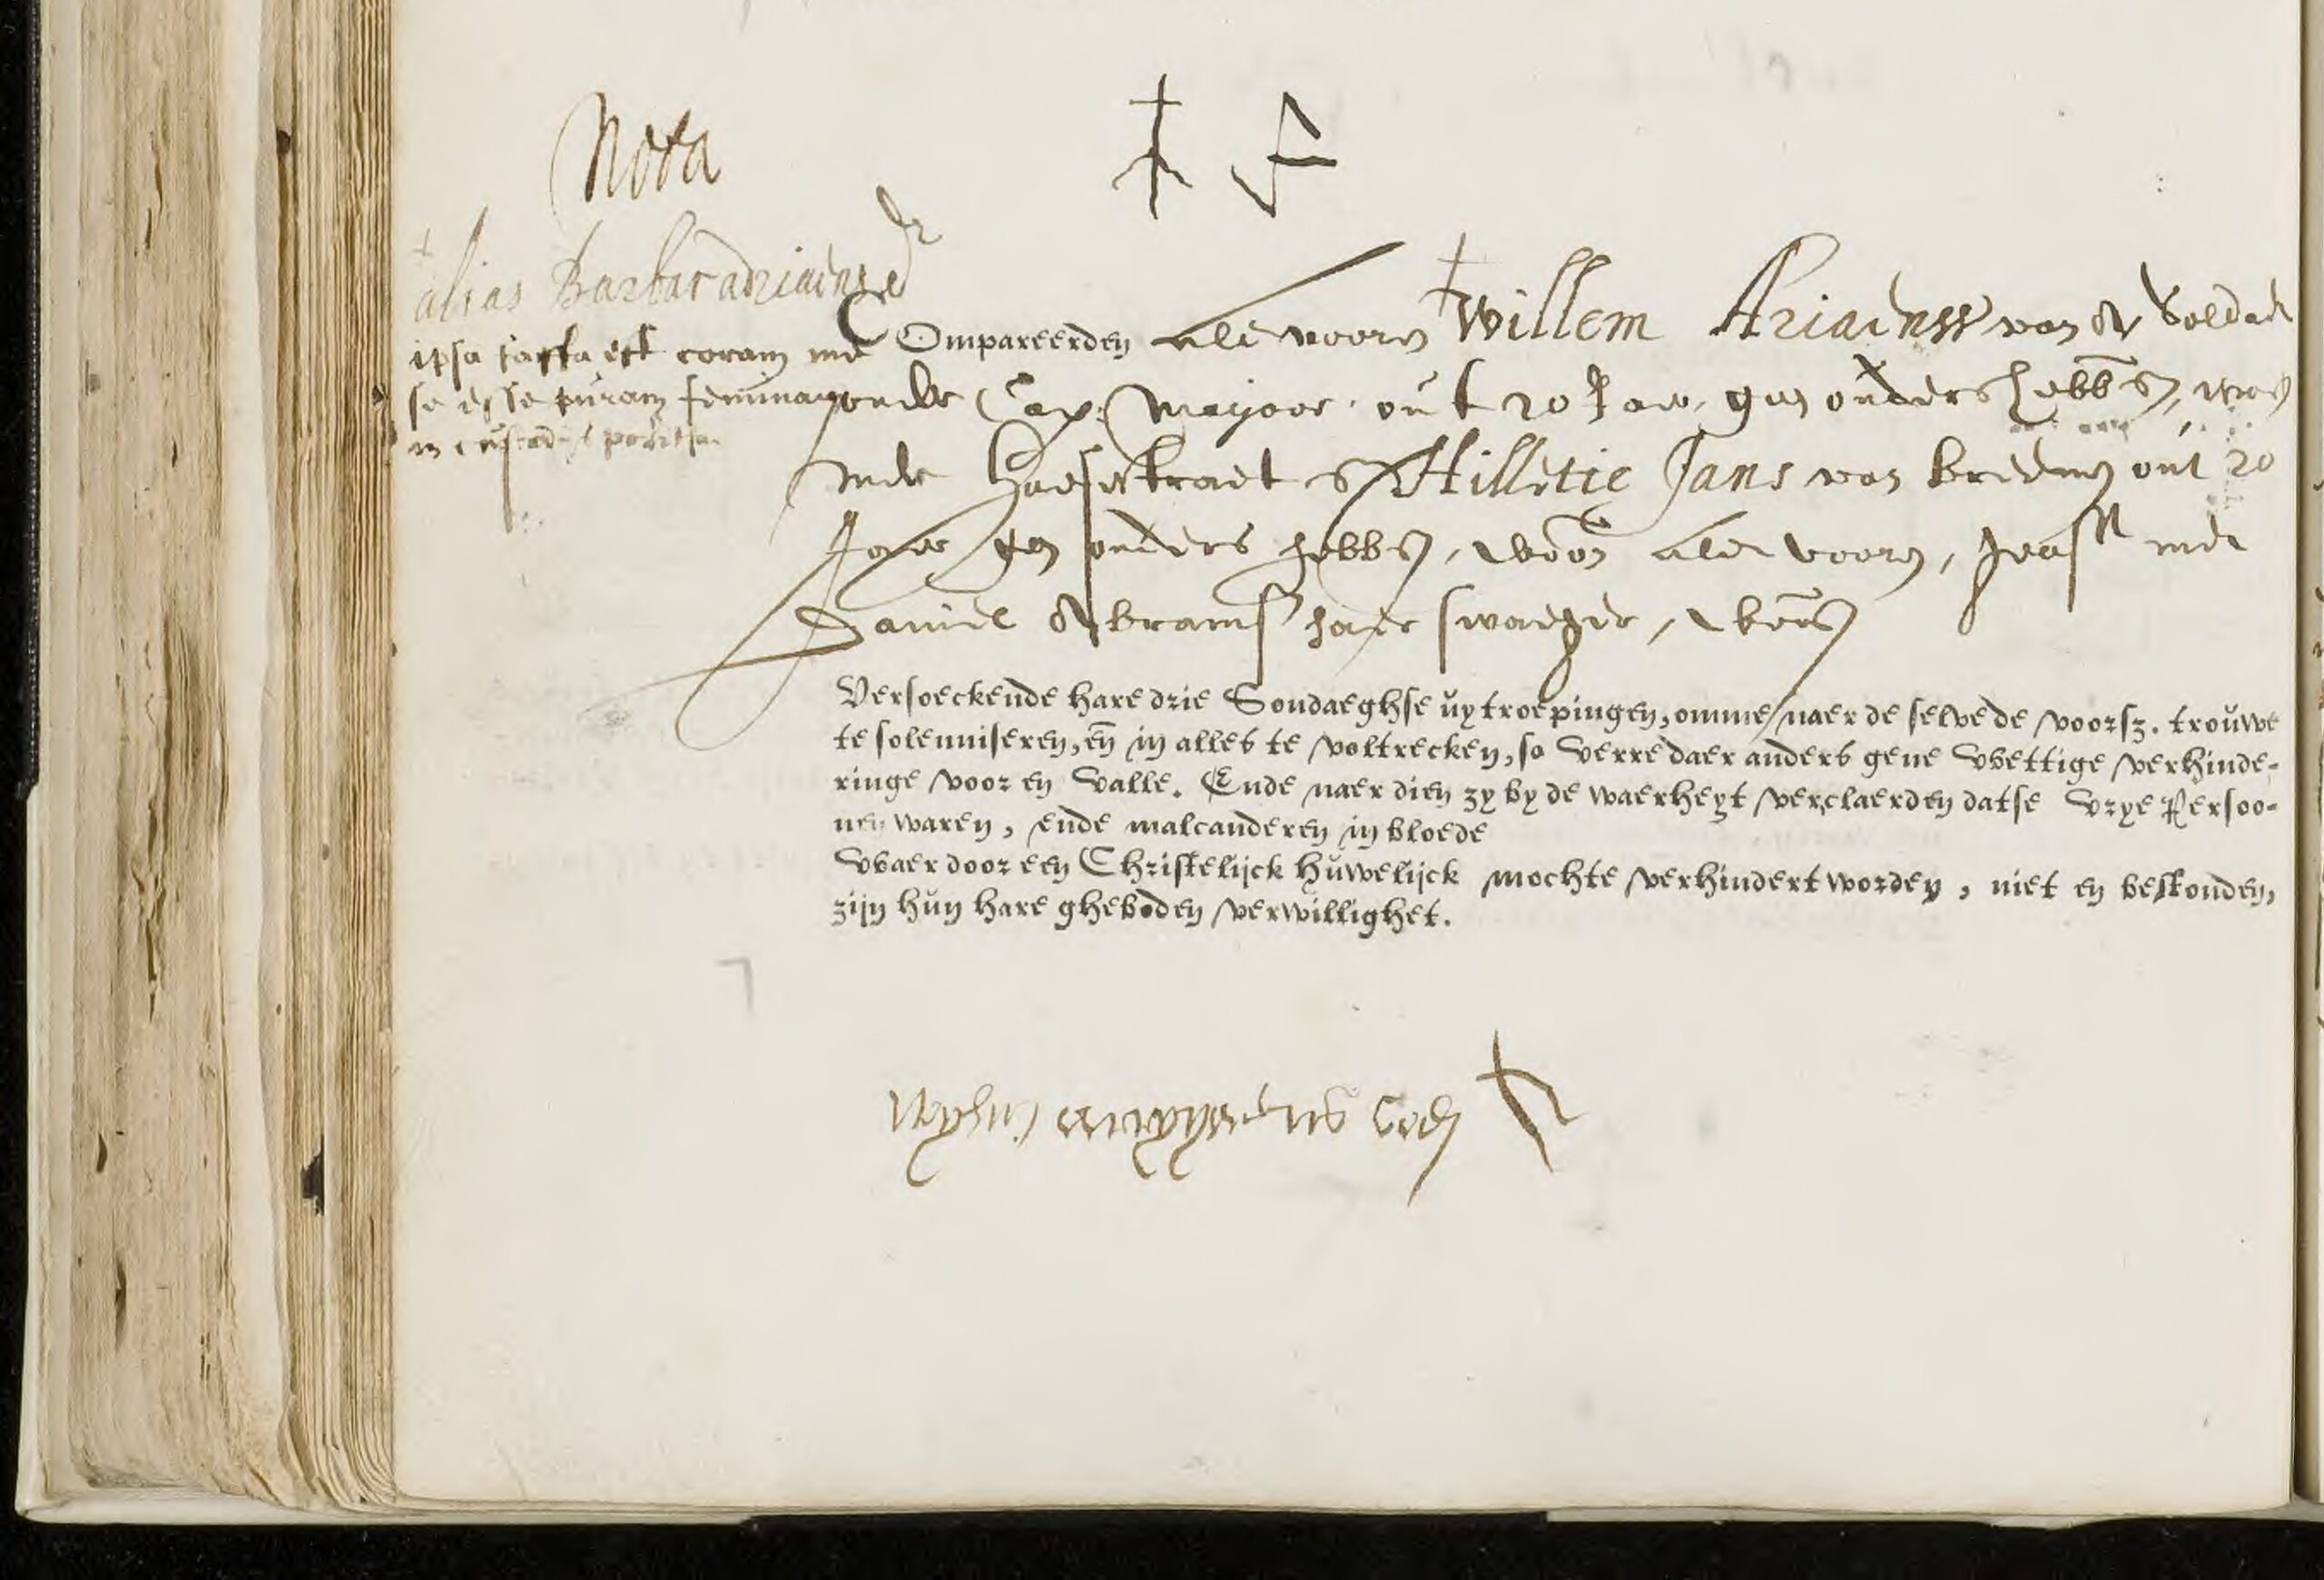 Nota
alias Barbar adriaens dr
ipsa fassa est coram me
se esse puram feminam
in custodijs posita
Compareerden als vooren Willem Ariaenss van A Soldaet
onder Cap. Mayoor out 20 Jaer, gen ouders hebb
inde Haesestraet & Hilletie Jans van out 20
Jaer gen ouders hebb, woon als vooren, geass met
Daniel Abrams haer swager,
Versoeckende hare drie Sondaeghse uytroepingen, omme naer de selve de voorsz. trouwe
te solenniseren, en in alles te voltrecken, so verre daer anders gene wettige verhinde-
ringe voor en valle. Ende naer dien zy by de waerheyt verclaerden datse vrye Persoo-
nen waren, ende malcanderen in bloede
waer door een Christelijck huwelijck mochte verhindert worden, niet en bestonden,
zijn hun hare gheboden verwillighet.